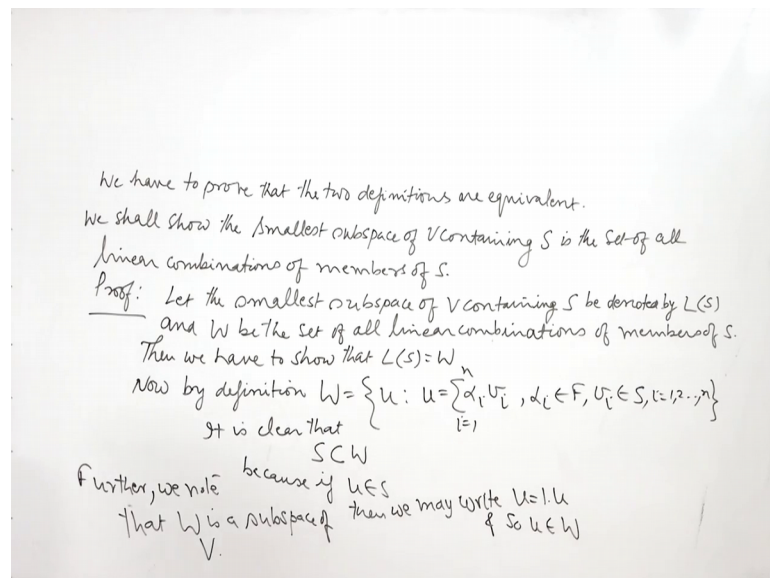 We have to prove that the two definitions are equivalent.
We shall show the smallest subspace of V containing S is the set of all
linear combinations of members of S.
Proof: Let the smallest subspace of V containing S be denoted by L(S)
and W be the set of all linear combinations of members of S.
Then we have to show that L(S) = W
Now by definition W = {u : u = ∑_{i=1}^{n} α_i v_i , α_i ∈ F, v_i ∈ S, i=1,2..,n}
It is clear that
S ⊂ W
because if u ∈ S
then we may write u = 1.u
& so u ∈ W
Further, we note
that W is a subspace of
V.